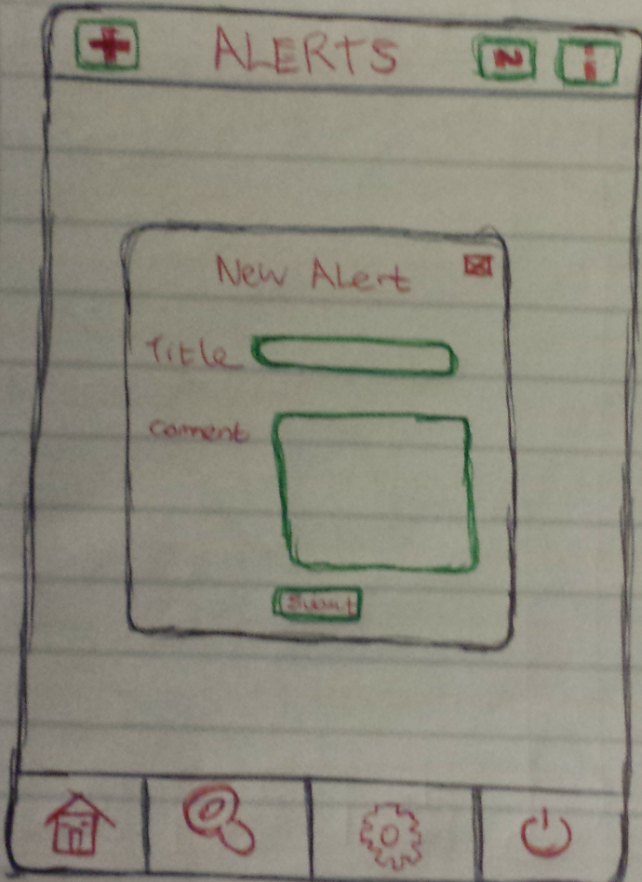 ALERTS 2
New Alert
Title
Comment
Submit